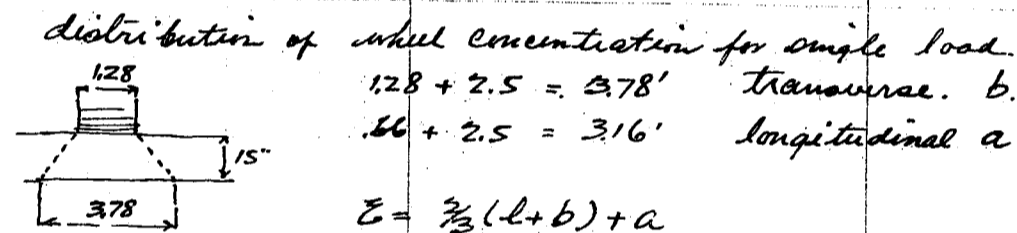 distribution of wheel concentration for single load.
1.28
1.28 + 2.5 = 3.78' transverse. b.
.66 + 2.5 = 3.16' longitudinal a
15"
3.78
E = 2/3 (l+b) + a